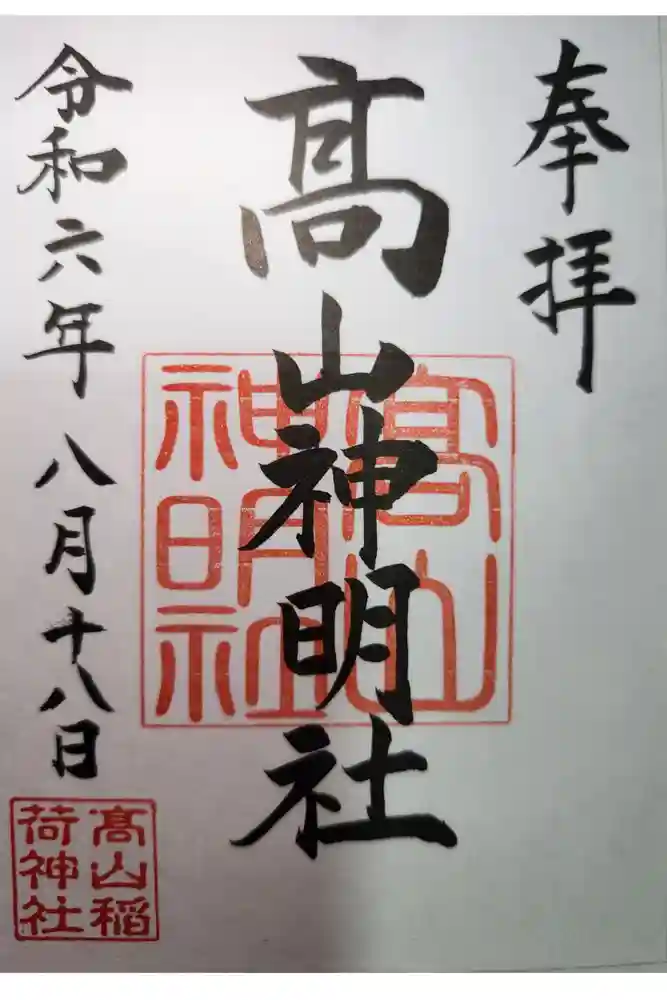 奉拝
髙山神明社
令和六年八月十八日
髙山
神明社
髙山稲
荷神社